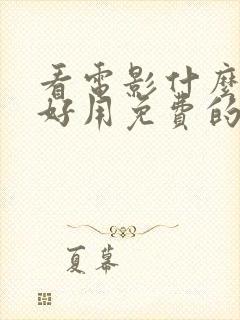 看電影什麼
好用免費的
夏幕